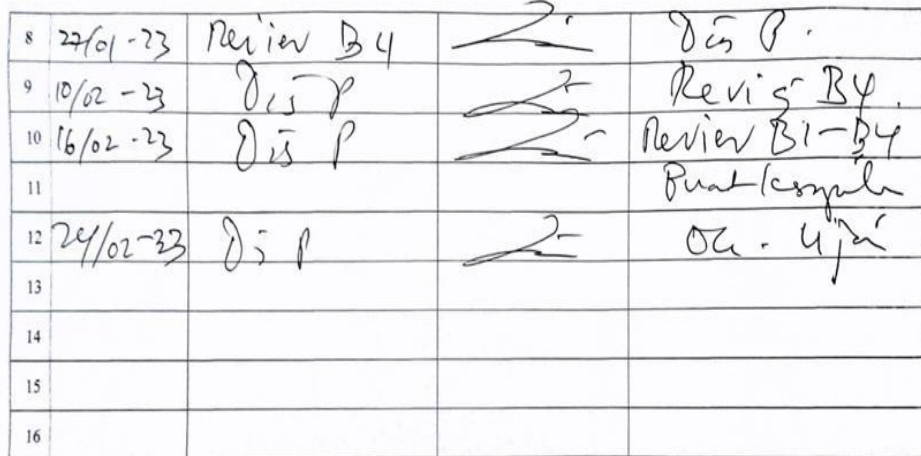 8 27/01-23 Review B4 Dis P.
9 10/02-23 Dis P Revisi B4.
10 16/02-23 Dis P Review B1-B4
11 Buat
12 24/02-23 Dis P Ok. Uji
13
14
15
16